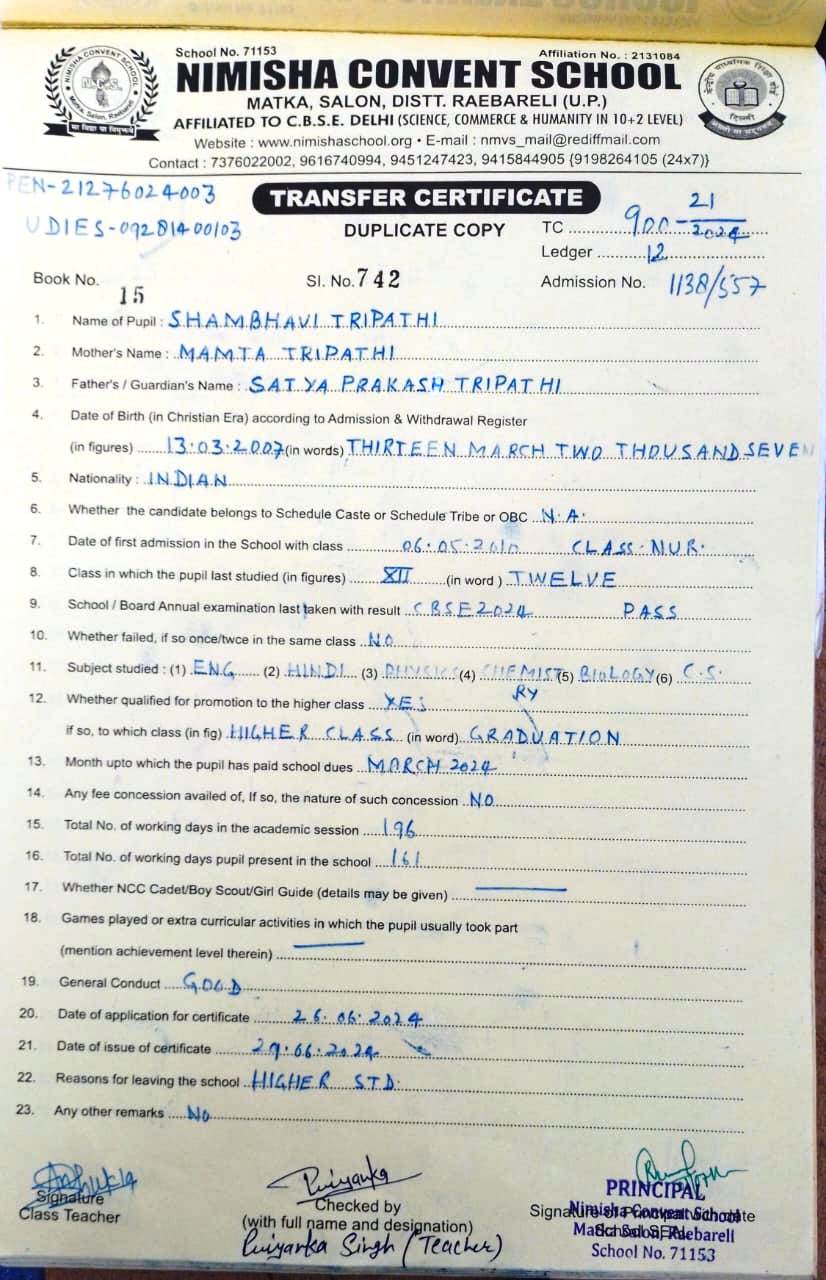 School No. 71153
Affiliation No. : 2131084
NIMISHA CONVENT SCHOOL
MATKA, SALON, DISTT. RAEBARELI (U.P.)
AFFILIATED TO C.B.S.E. DELHI (SCIENCE, COMMERCE & HUMANITY IN 10+2 LEVEL)
Website : www.nimishaschool.org • E-mail : nmvs_mail@rediffmail.com
Contact : 7376022002, 9616740994, 9451247423, 9415844905 {9198264105 (24x7)}
PEN-21276024003
TRANSFER CERTIFICATE
UDIES-09281400103
DUPLICATE COPY
TC 900-21/2024
Ledger 12
Book No. 15
Sl. No. 742
Admission No. 1138/557
1. Name of Pupil : SHAMBHAVI TRIPATHI
2. Mother's Name : MAMTA TRIPATHI
3. Father's / Guardian's Name : SATYA PRAKASH TRIPATHI
4. Date of Birth (in Christian Era) according to Admission & Withdrawal Register
(in figures) 13.03.2007 (in words) THIRTEEN MARCH TWO THOUSAND SEVEN
5. Nationality : INDIAN
6. Whether the candidate belongs to Schedule Caste or Schedule Tribe or OBC N.A.
7. Date of first admission in the School with class 06.05.2010 CLASS-NUR.
8. Class in which the pupil last studied (in figures) XII (in word ) TWELVE
9. School / Board Annual examination last taken with result CBSE 2024 PASS
10. Whether failed, if so once/twce in the same class NO
11. Subject studied : (1) ENG (2) HINDI (3) PHYSICS (4) CHEMISTRY (5) BIOLOGY (6) C.S.
12. Whether qualified for promotion to the higher class YES
if so, to which class (in fig) HIGHER CLASS (in word) GRADUATION
13. Month upto which the pupil has paid school dues MARCH 2024
14. Any fee concession availed of, If so, the nature of such concession NO
15. Total No. of working days in the academic session 196
16. Total No. of working days pupil present in the school 161
17. Whether NCC Cadet/Boy Scout/Girl Guide (details may be given)
18. Games played or extra curricular activities in which the pupil usually took part
(mention achievement level therein)
19. General Conduct GOOD
20. Date of application for certificate 26.06.2024
21. Date of issue of certificate 29.06.2024
22. Reasons for leaving the school HIGHER STD.
23. Any other remarks NO
Signature
Class Teacher
Priyanka
Checked by
(with full name and designation)
Priyanka Singh (Teacher)
PRINCIPAL
Signature of Principal with date
Nimisha Convent School
School SEAL
Matka Salon, Raebareli
School No. 71153